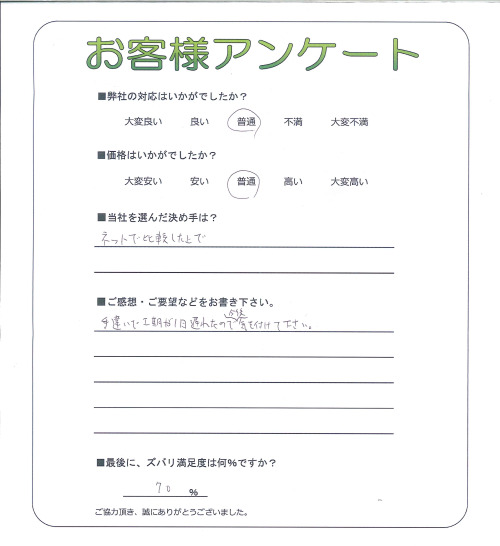 お客様アンケート
■弊社の対応はいかがでしたか？
大変良い 良い 普通 不満 大変不満
■価格はいかがでしたか？
大変安い 安い 普通 高い 大変高い
■当社を選んだ決め手は？
ネットで比較した上で
■ご感想・ご要望などをお書き下さい。
今後
手違いで工期が1日遅れたので気を付けて下さい。
■最後に、ズバリ満足度は何%ですか？
70 %
ご協力頂き、誠にありがとうございました。